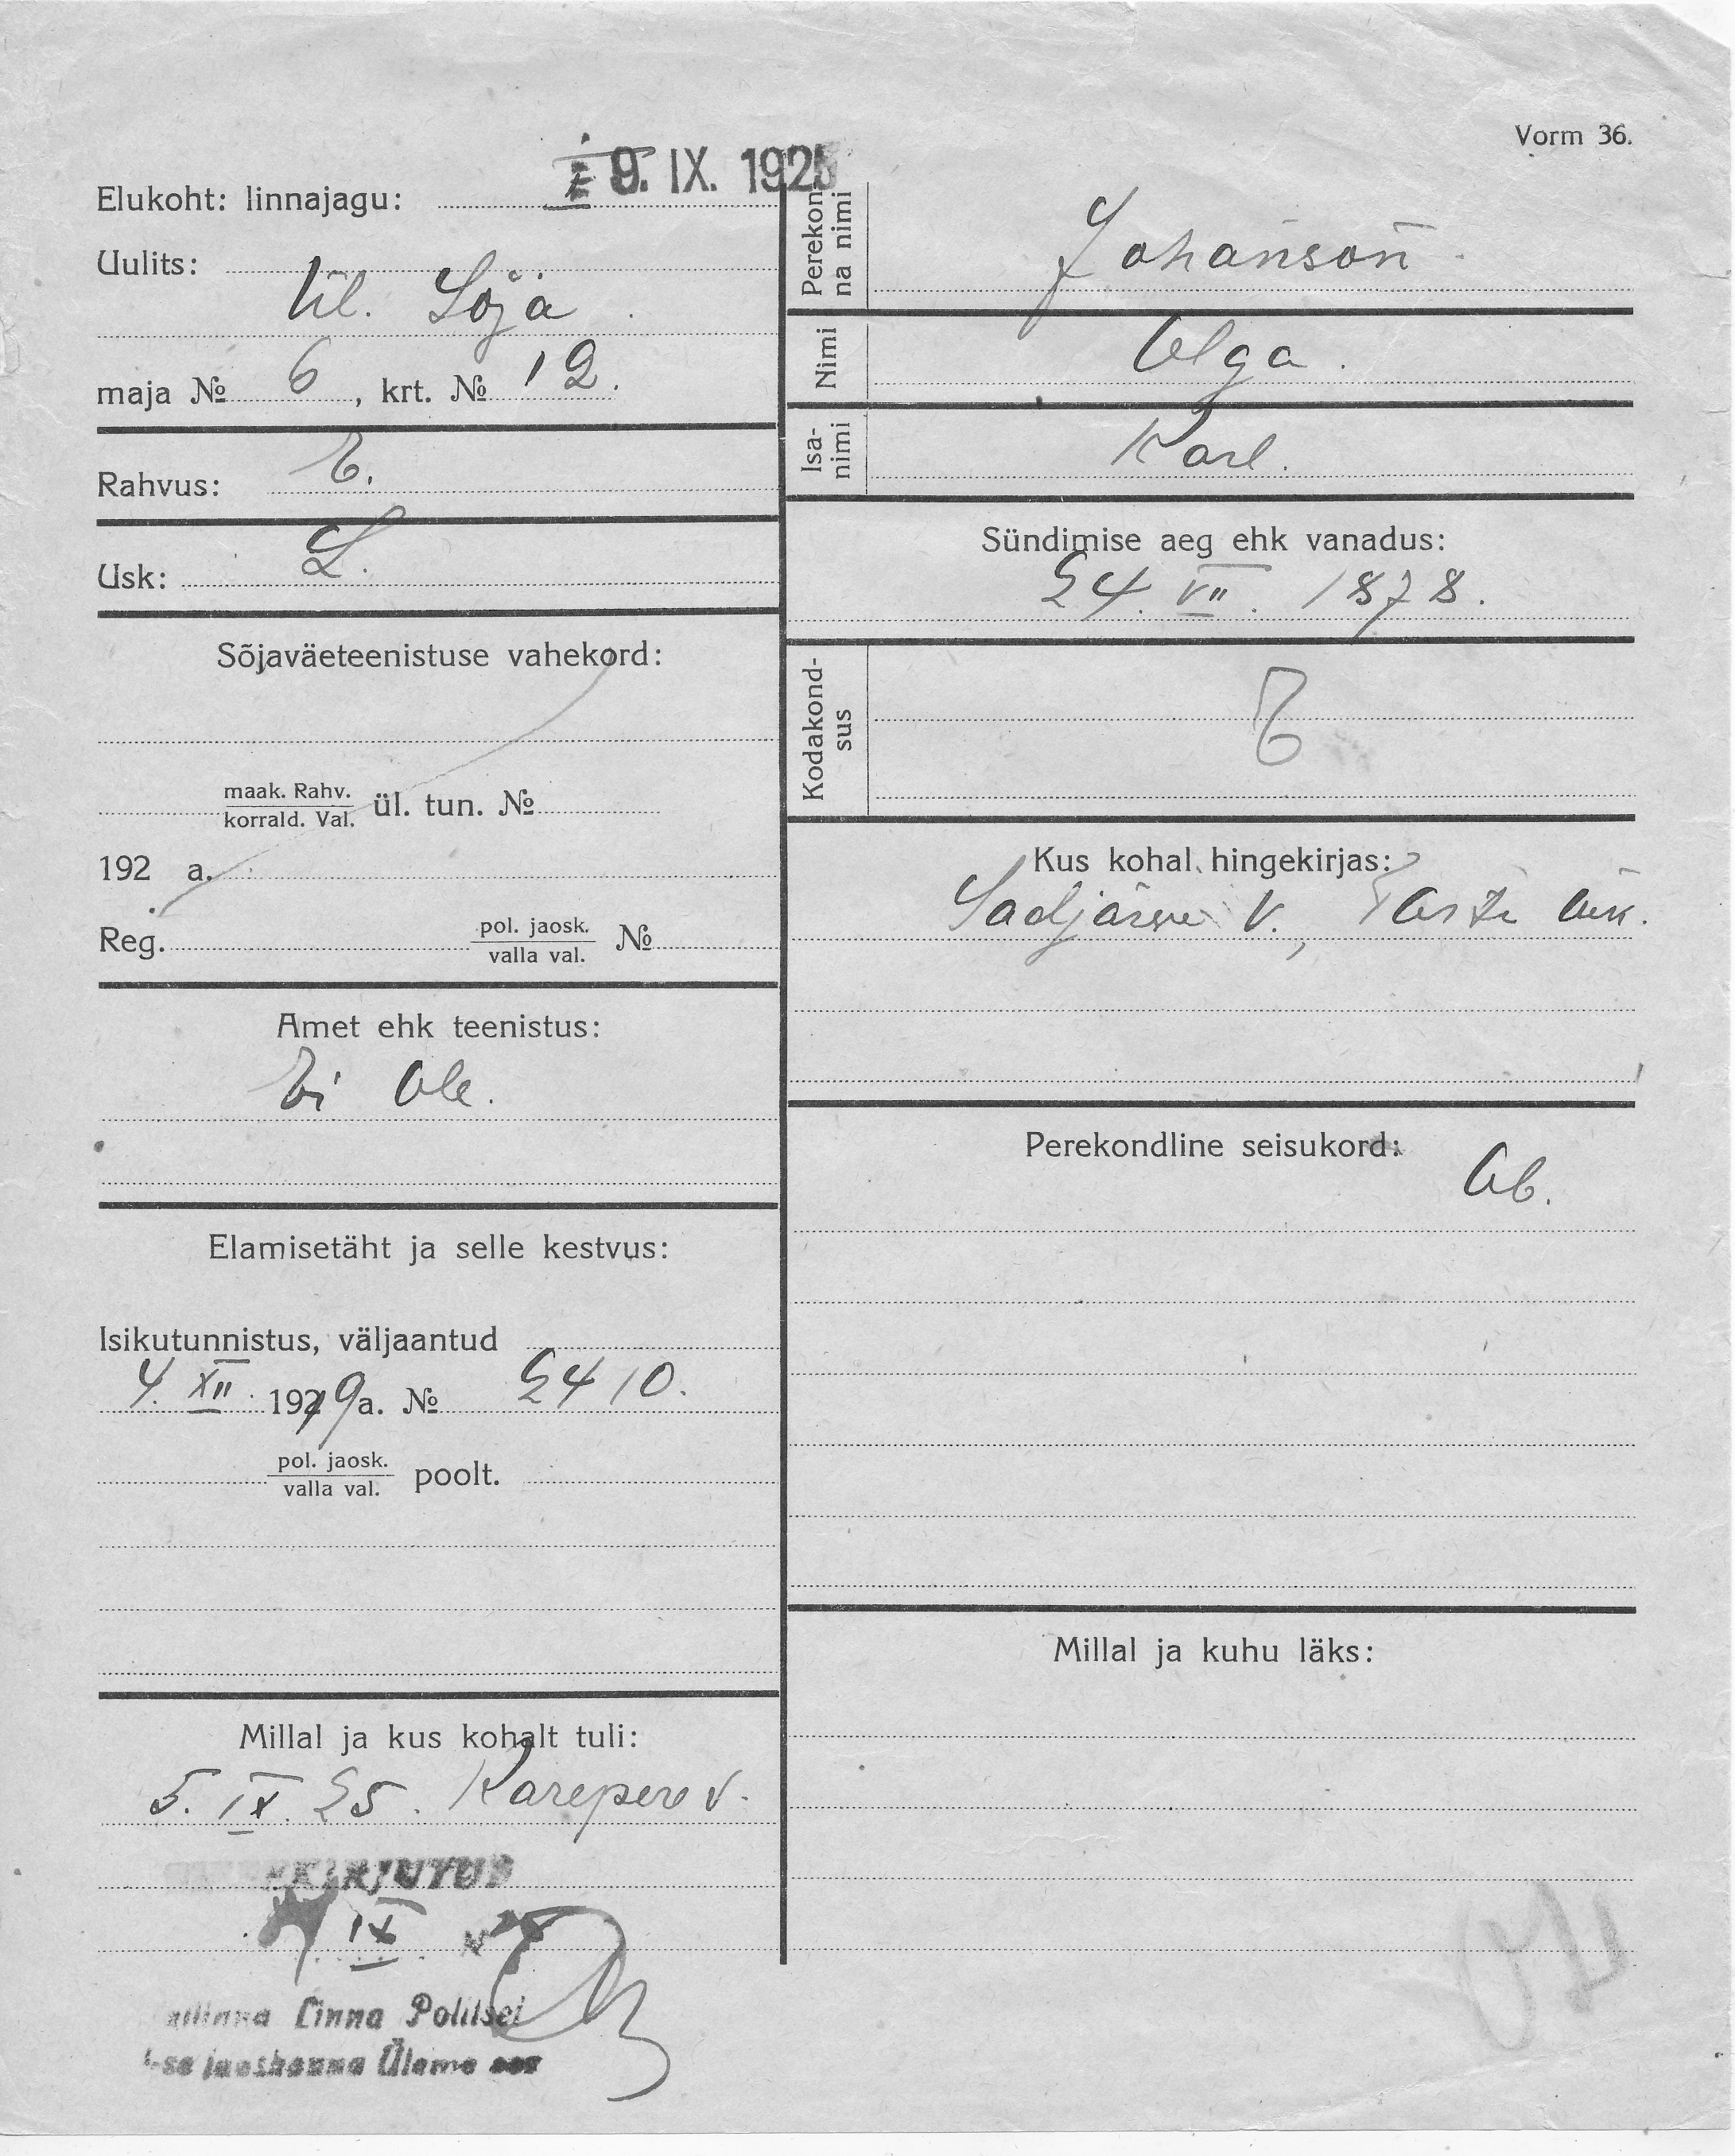 Vorm 36.
9. IX. 1925
Elukoht: linnajagu:
Uulits:
Vil. Sõja
maja № 6, krt. № 12.
Rahvus: E.
Usk: L.
Sõjaväeteenistuse vahekord:
maak. Rahv.
korrald. Val.
ül. tun. №
192 a.
Reg. pol. jaosk.
valla val.
№
Amet ehk teenistus:
Ei Ole.
Elamisetäht ja selle kestvus:
Isikutunnistus, väljaantud
4. XII. 1919a. № 2410.
pol. jaosk.
valla val.
poolt.
Millal ja kus kohalt tuli:
5. IX. 25. Karepere v.
IX
Linna Politsei
jaoskonna Ülema
Perekonna nimi
Johanson
Nimi
Olga.
Isanimi
Karl.
Sündimise aeg ehk vanadus:
24. VII. 1878.
Kodakondsus
E
Kus kohal hingekirjas:
Sadjärve V.,
Perekondline seisukord:
Ab.
Millal ja kuhu läks: